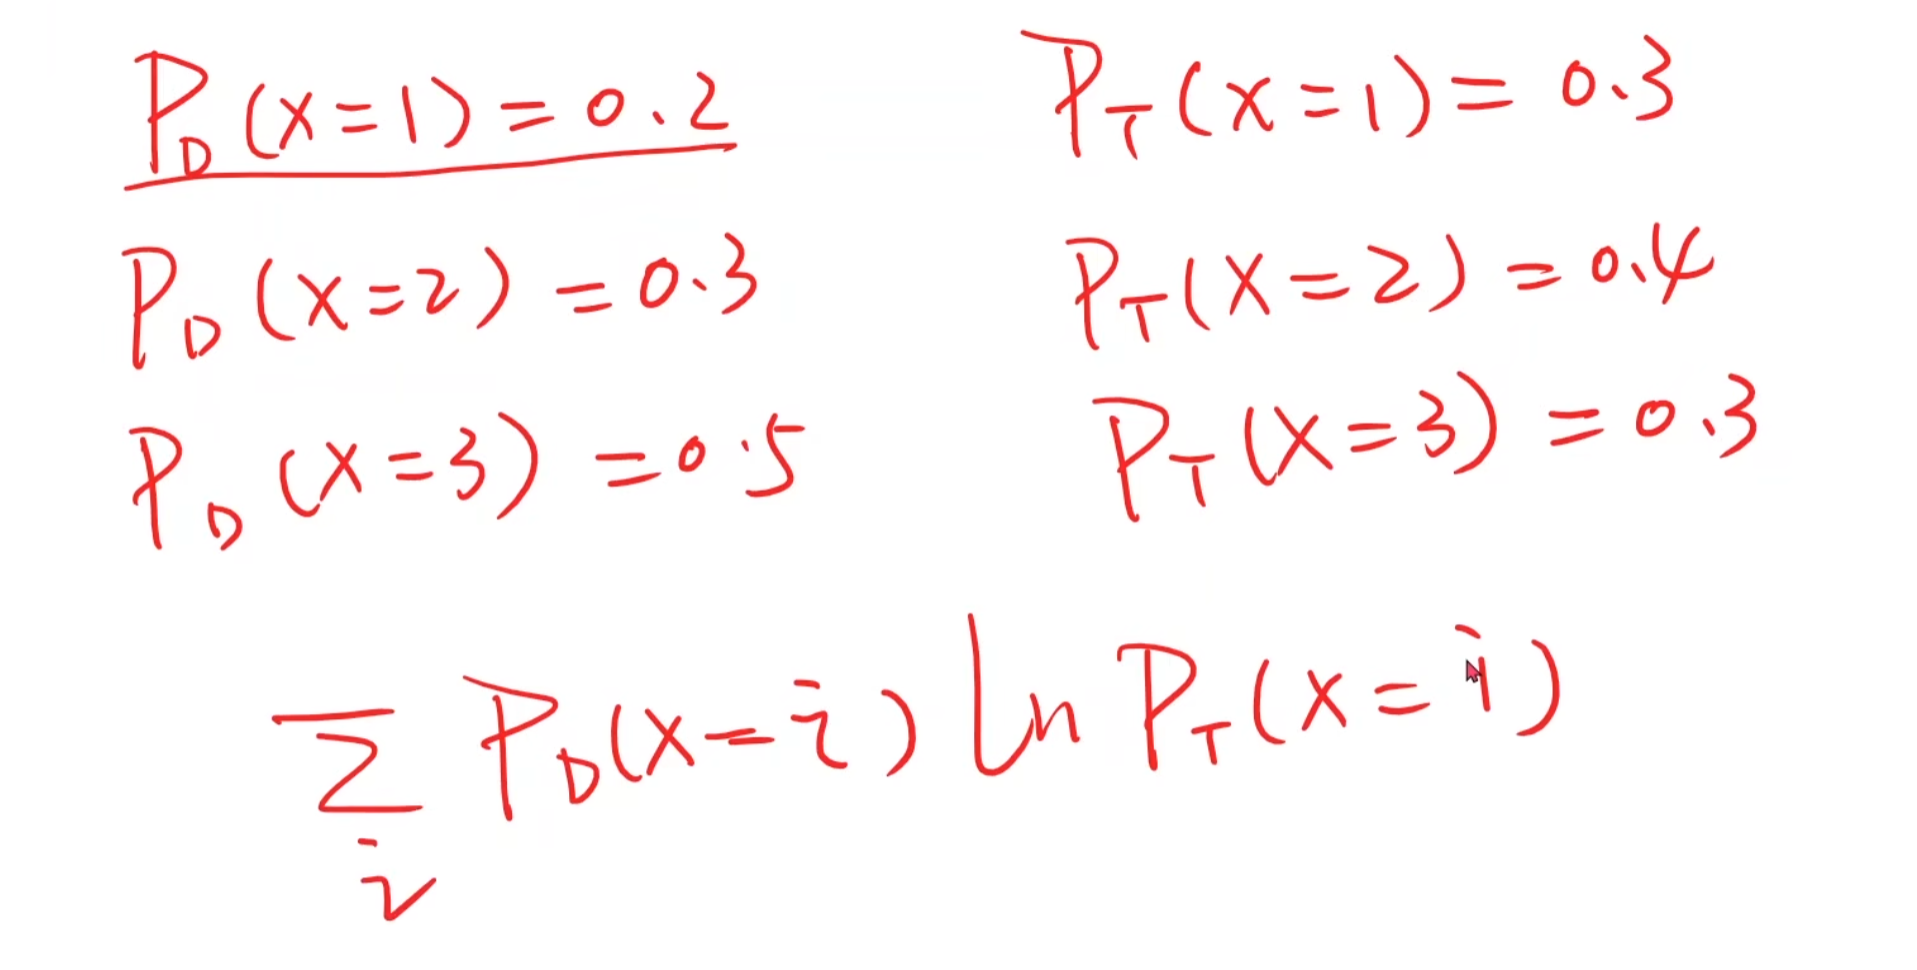 P_D (x=1) = 0.2
P_T (x=1) = 0.3
P_D (x=2) = 0.3
P_T (x=2) = 0.4
P_D (x=3) = 0.5
P_T (x=3) = 0.3
∑_i P_D(x=i) ln P_T(x=i)